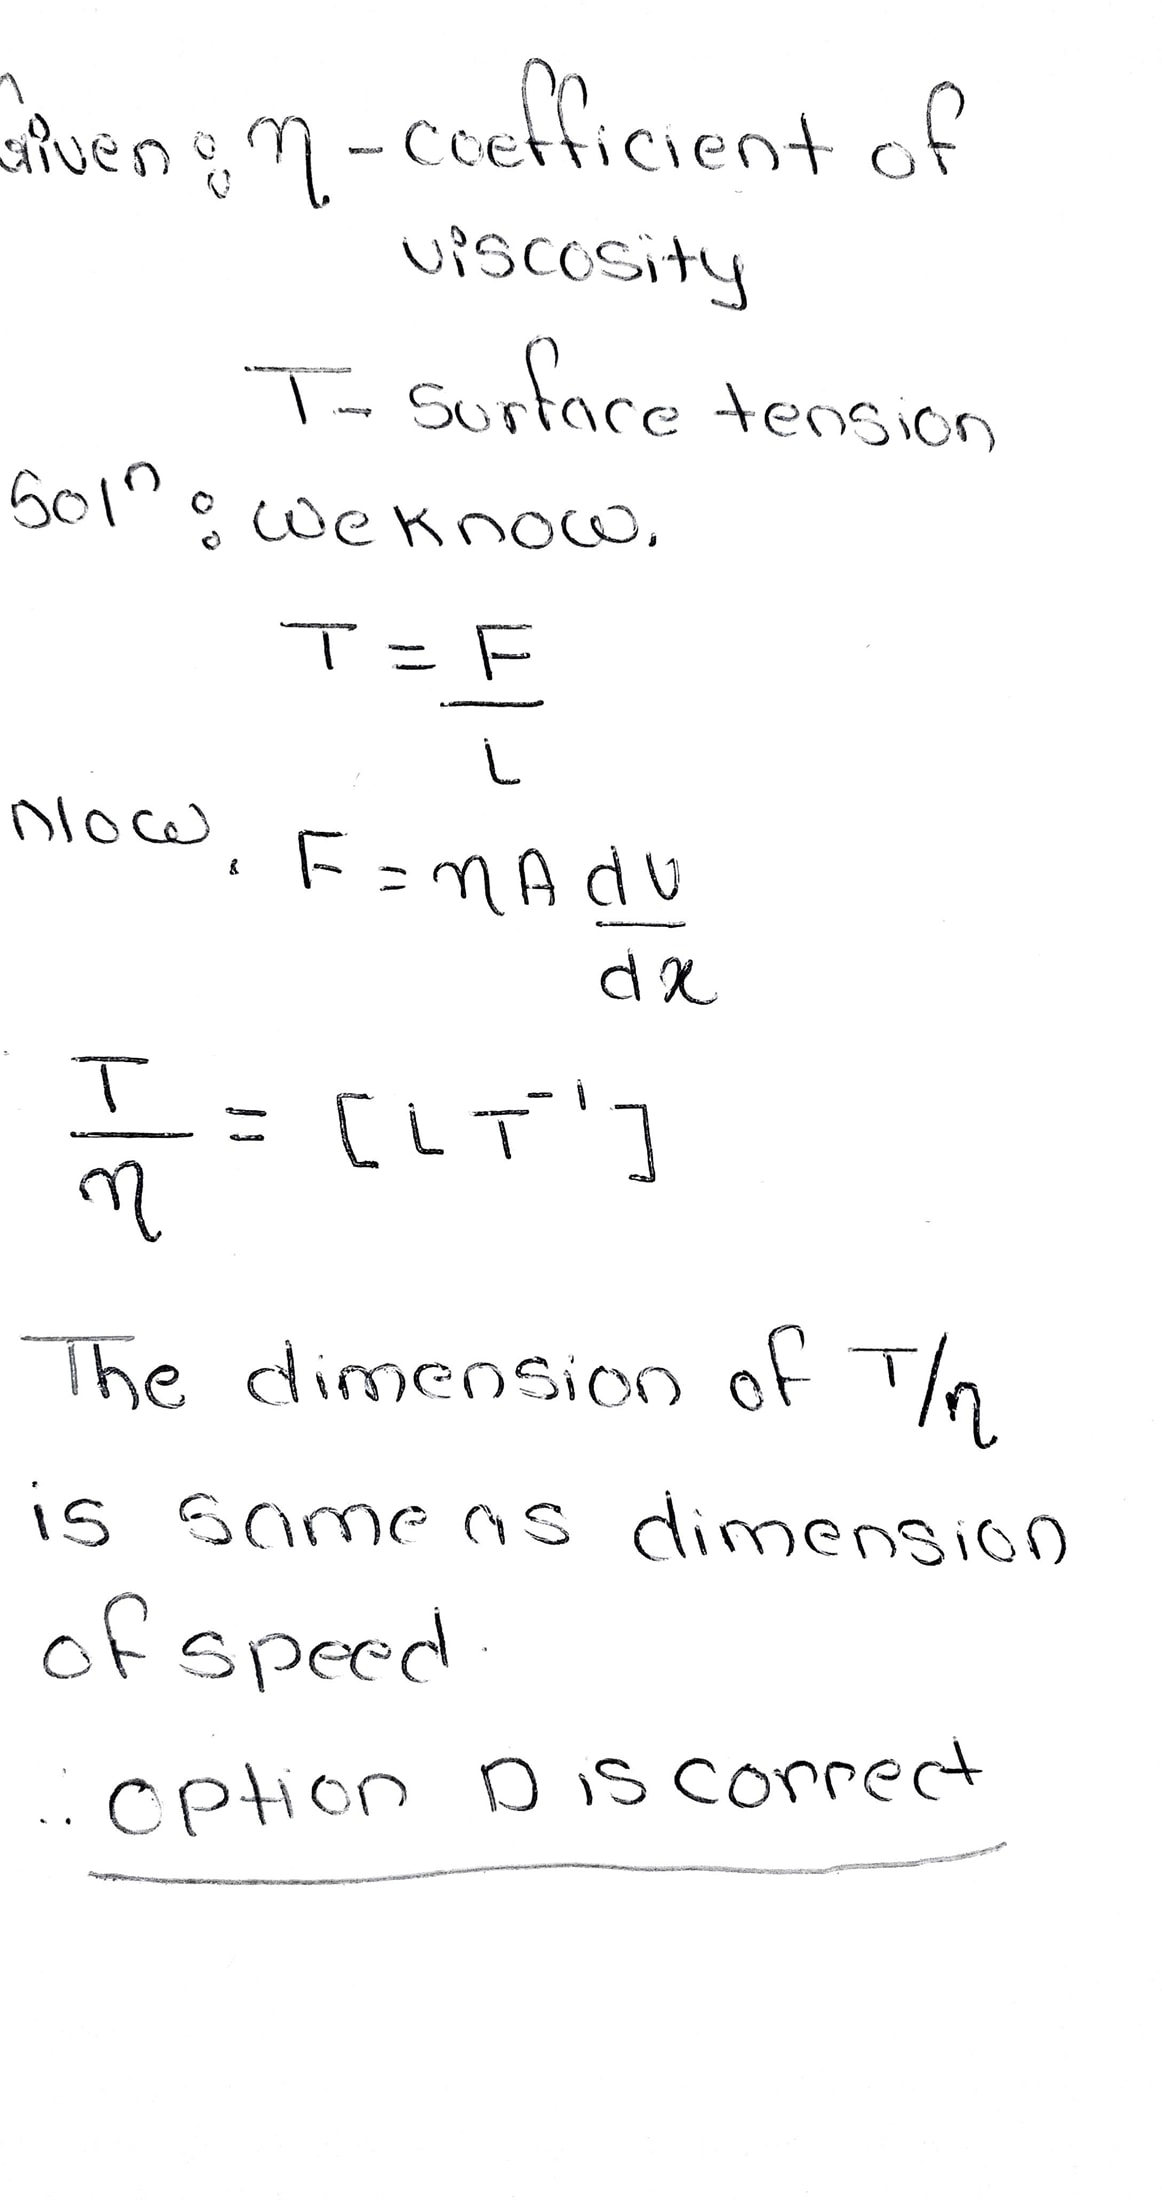 Given : η - coefficient of
viscosity
T - Surface tension
Solⁿ : We know,
T = F
L
Now, F = η A dv
dx
T
η = [L T⁻¹]
The dimension of T/η
is same as dimension
of speed.
∴ option D is correct